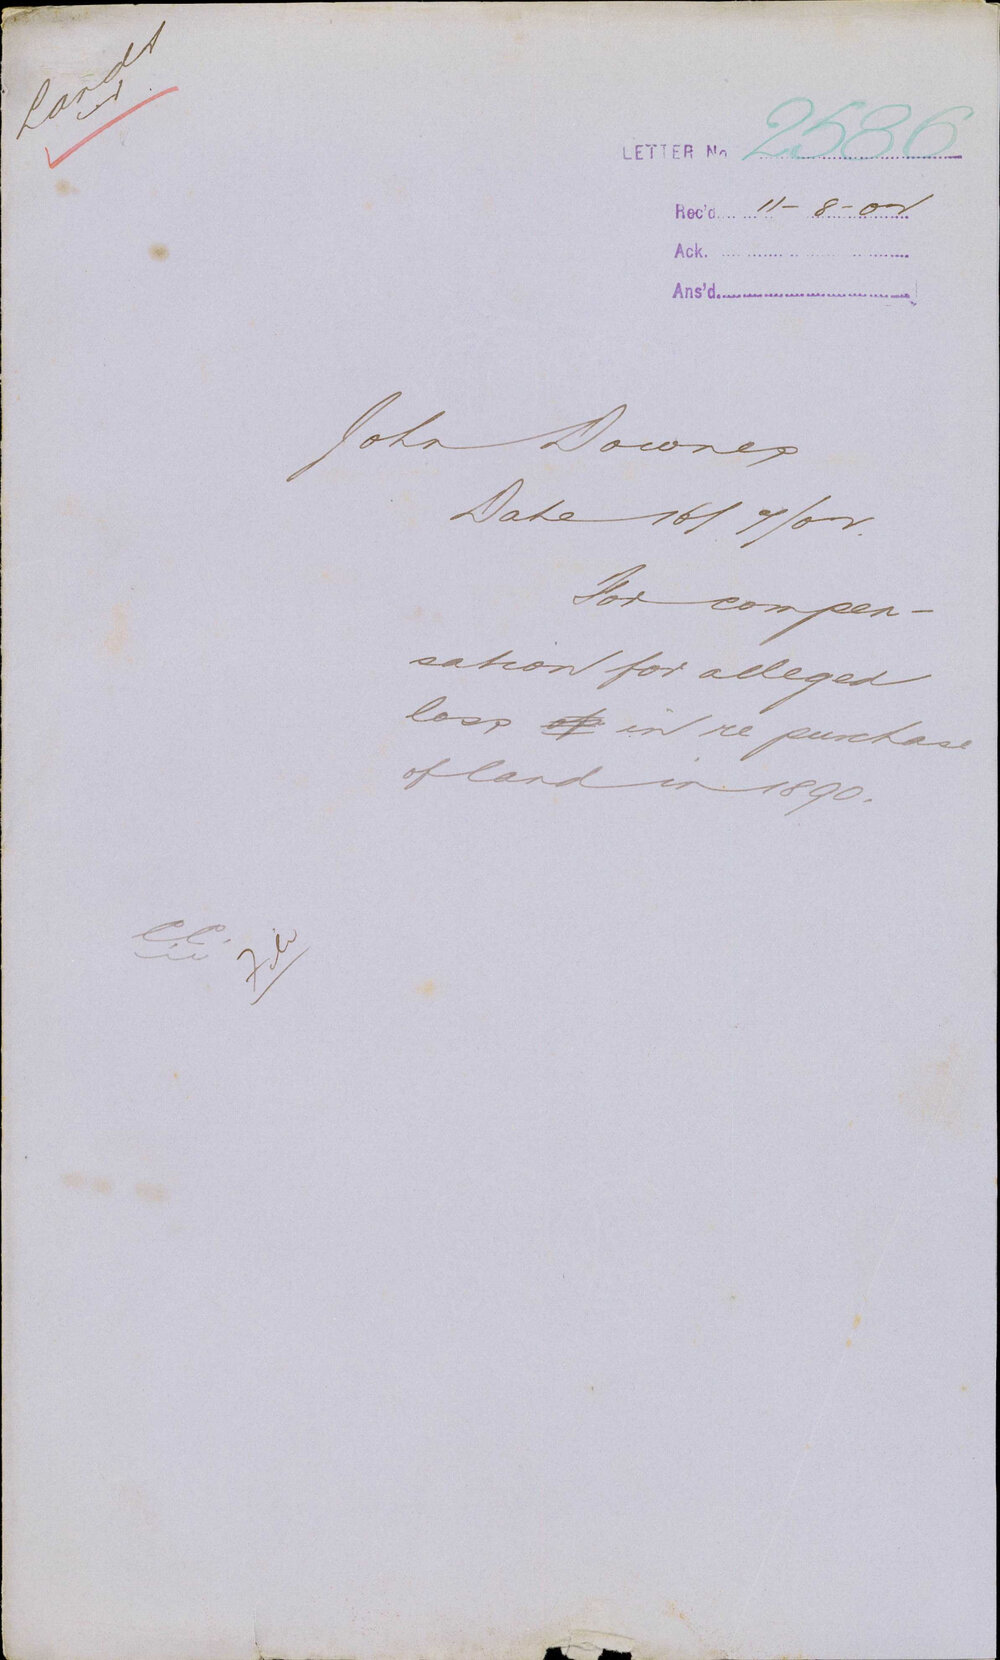 Lands
LETTER No 2586
Rec'd 11-8-02
Ack.
Ans'd.
John Downes
Date 16/7/02.
For compen-
sation for alleged
loss in re purchase
of land in 1890.
C.C.
File